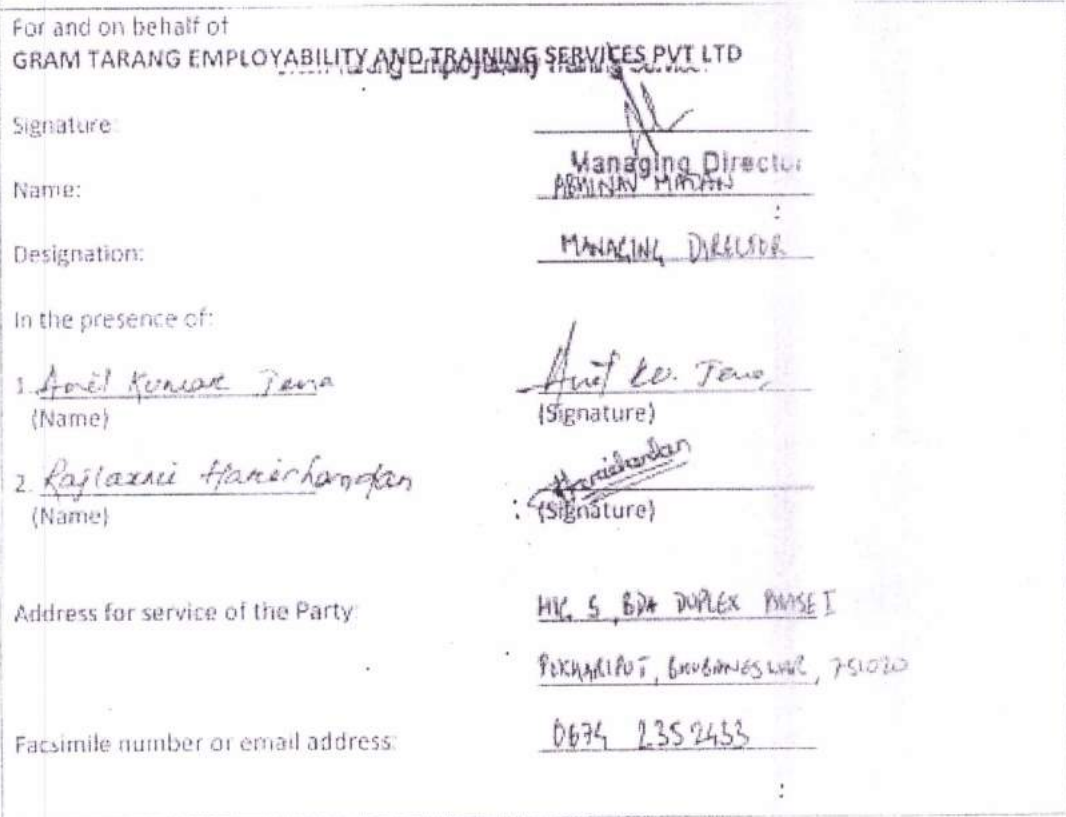 For and on behalf of
GRAM TARANG EMPLOYABILITY AND TRAINING SERVICES PVT LTD
Signature:
Managing Director
Name: ABHINAV MADAN
Designation: MANAGING DIRECTOR
In the presence of:
1. Anil Kumar Jena Anil Ku. Jena
(Name) (Signature)
2. Rajlaxmi Harichandan Harichandan
(Name) (Signature)
Address for service of the Party: 5, BDA DUPLEX PHASE I
POKHARIPUT, BHUBANESWAR, 751020
Facsimile number or email address: 0674 2352433